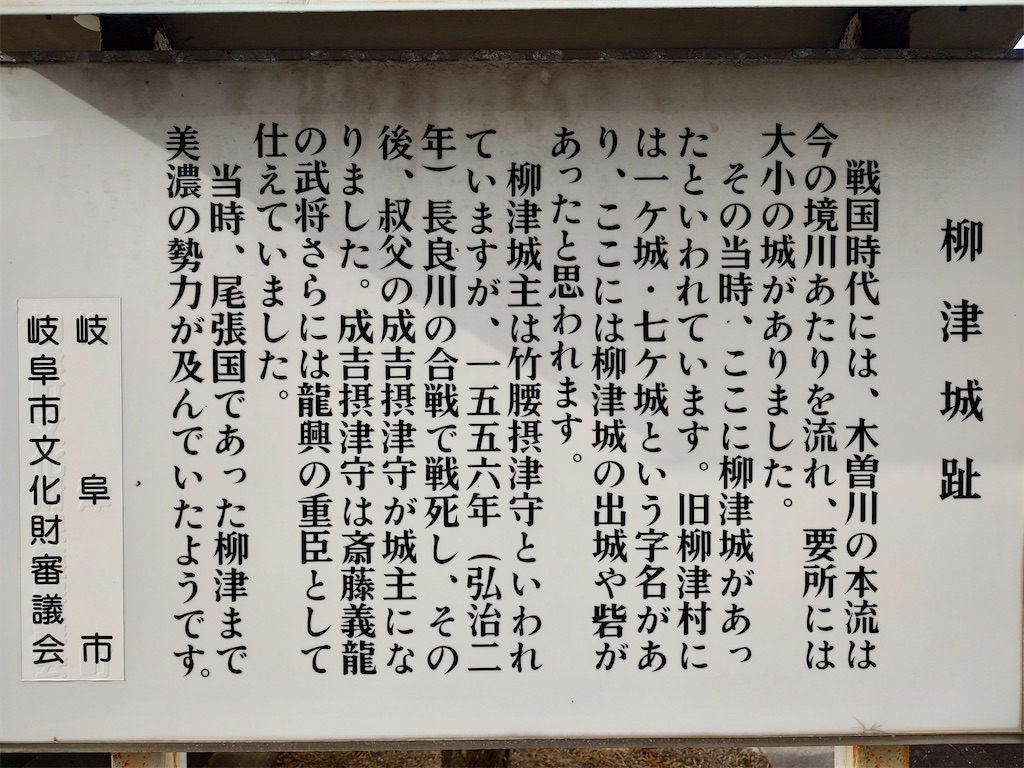 柳津城趾
戦国時代には、木曽川の本流は
今の境川あたりを流れ、要所には
大小の城がありました。
その当時、ここに柳津城があっ
たといわれています。旧柳津村に
は一ケ城・七ケ城という字名があ
り、ここには柳津城の出城や砦が
あったと思われます。
柳津城主は竹腰摂津守といわれ
ていますが、一五五六年（弘治二
年）長良川の合戦で戦死し、その
後、叔父の成吉摂津守が城主にな
りました。成吉摂津守は斎藤義龍
の武将さらには龍興の重臣として
仕えていました。
当時、尾張国であった柳津まで
美濃の勢力が及んでいたようです。
岐阜市
岐阜市文化財審議会